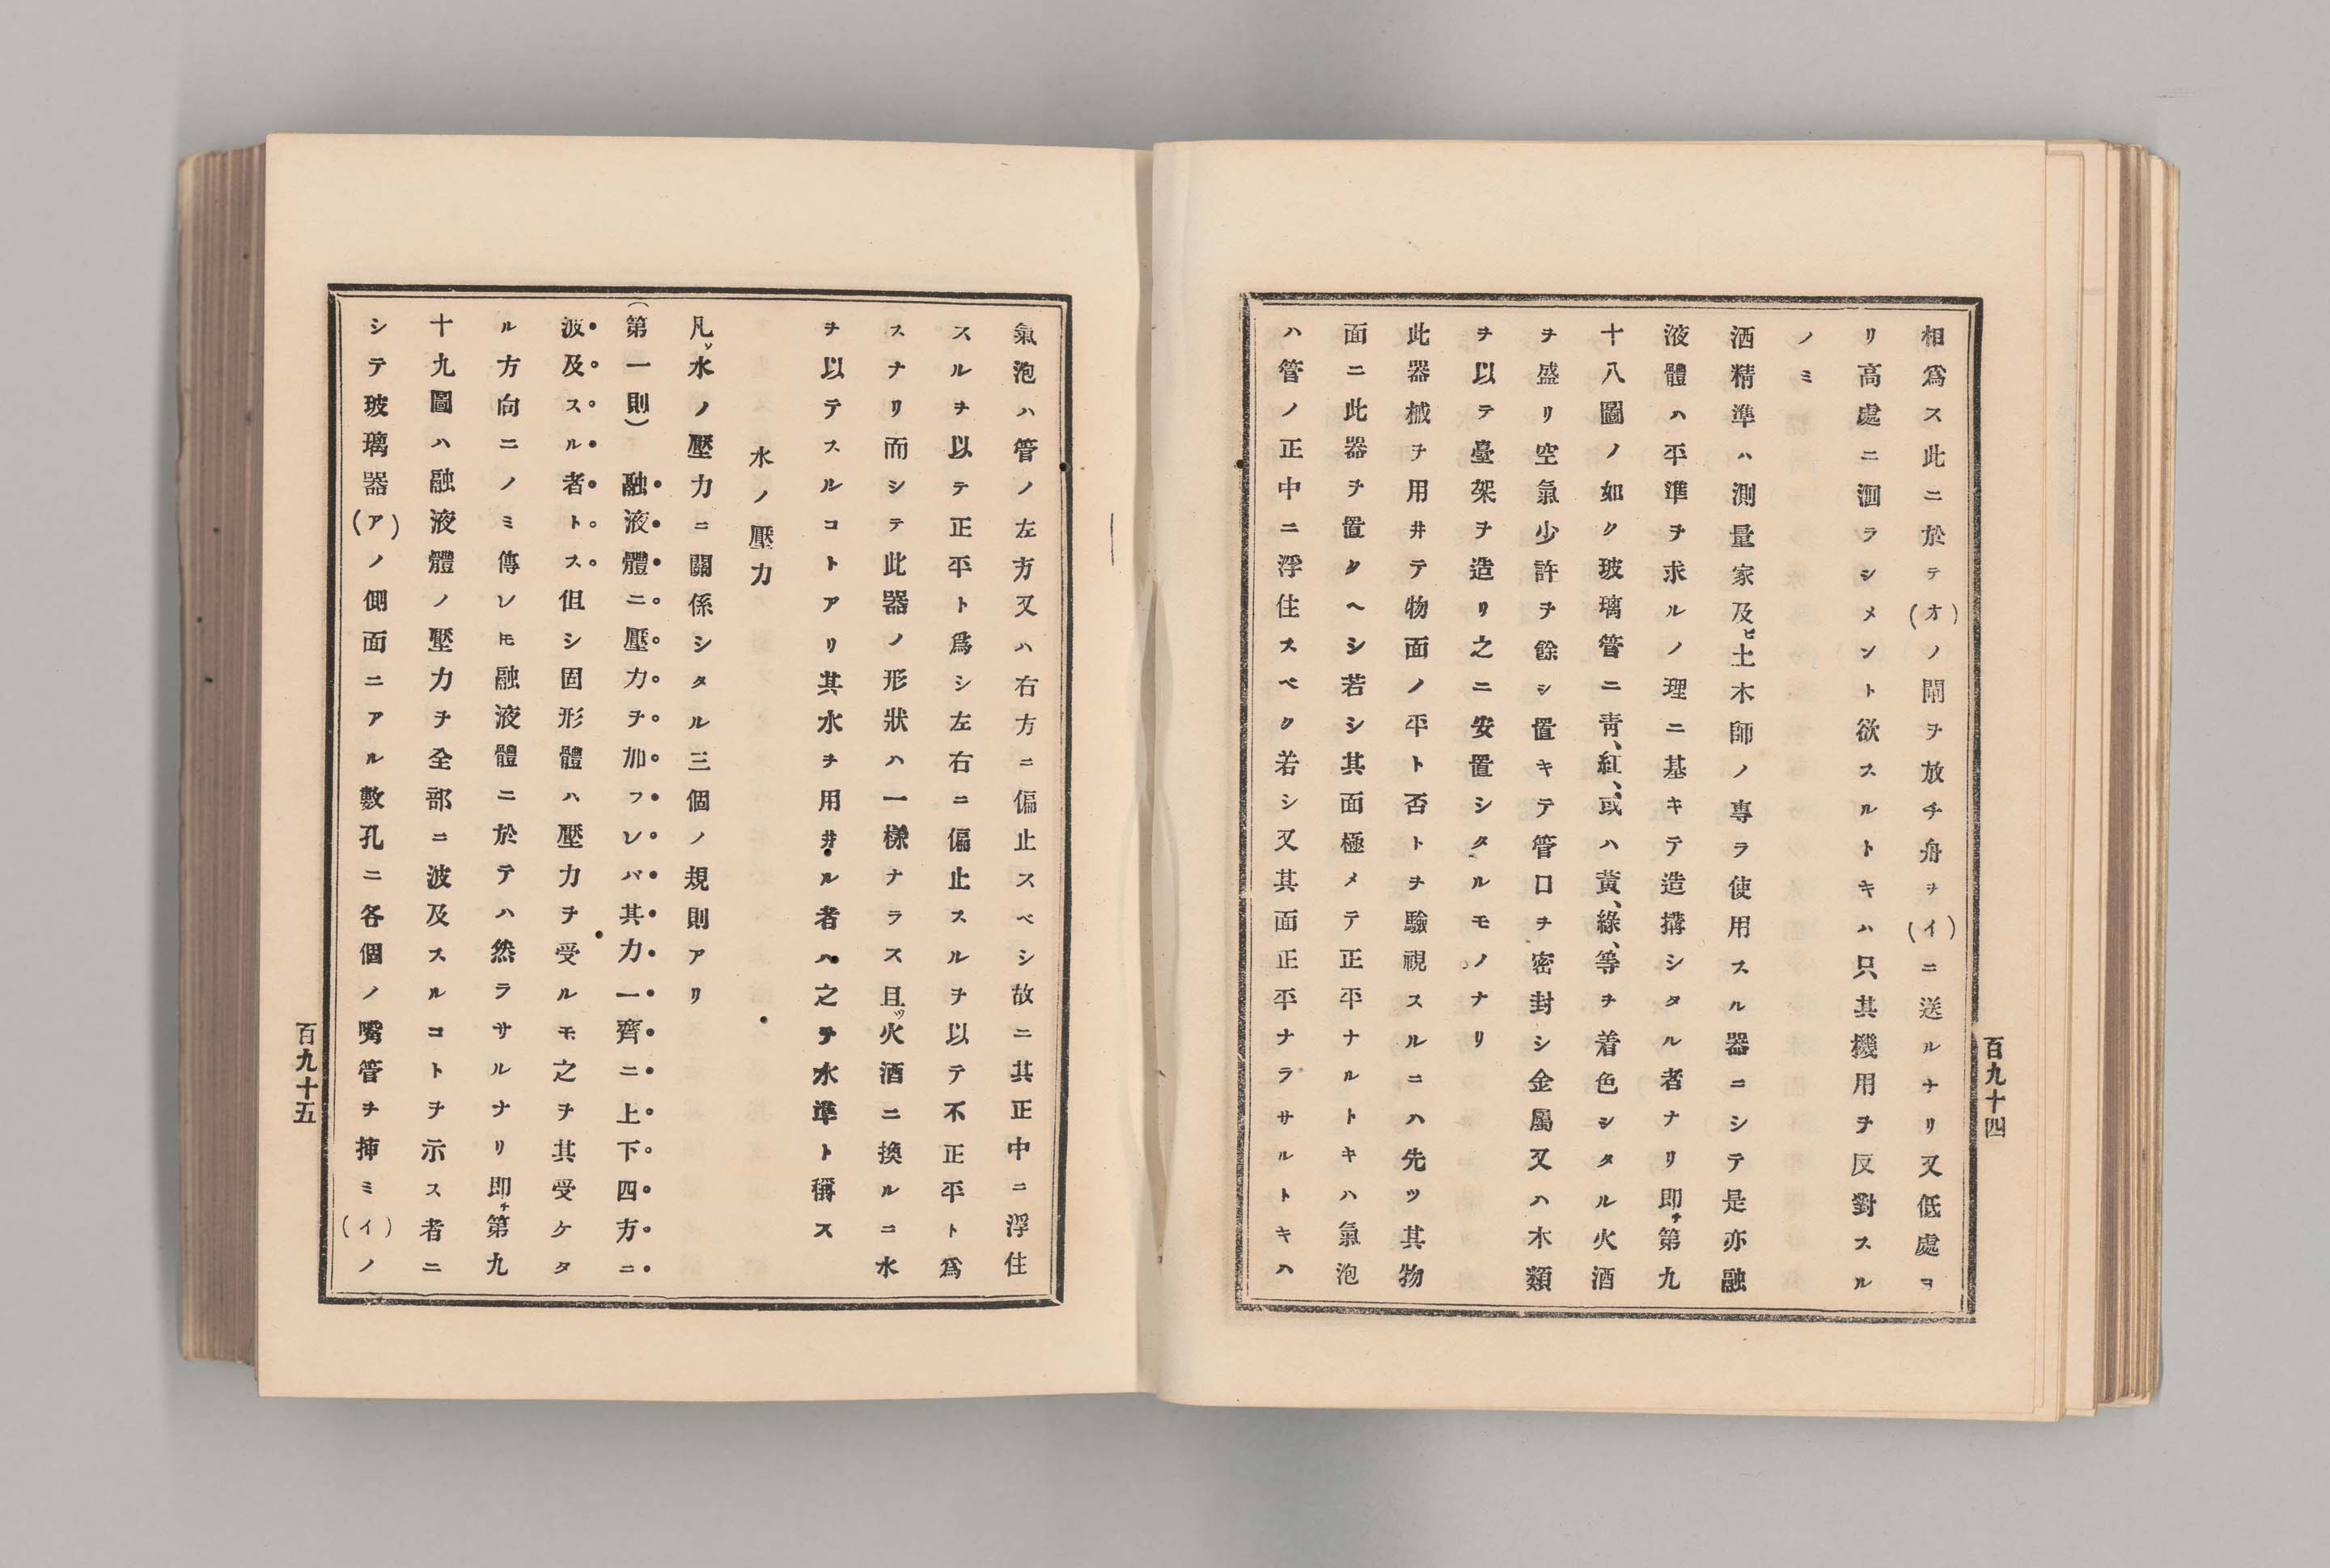 相爲ス此ニ於テ(オ)ノ閘ヲ放チ舟ヲ(イ)ニ送ルナリ又低處ヨ
リ高處ニ泝ラシメント欲スルトキハ只其機用ヲ反對スル
ノミ
酒精準ハ測量家及ヒ土木師ノ專ラ使用スル器ニシテ是亦融
液體ハ平準ヲ求ルノ理ニ基キテ造搆シタル者ナリ即チ第九
十八圖ノ如ク玻璃管ニ靑、紅、或ハ黃、綠、等ヲ着色シタル火酒
ヲ盛リ空氣少許ヲ餘シ置キテ管口ヲ密封シ金屬又ハ木類
ヲ以テ臺架ヲ造リ之ニ安置シタルモノナリ
此器械ヲ用井テ物面ノ平ト否トヲ驗視スルニハ先ツ其物
面ニ此器ヲ置クヘシ若シ其面極メテ正平ナルトキハ氣泡
ハ管ノ正中ニ浮住スベク若シ又其面正平ナラサルトキハ
百九十四
氣泡ハ管ノ左方又ハ右方ニ偏止スベシ故ニ其正中ニ浮住
スルヲ以テ正平ト爲シ左右ニ偏止スルヲ以テ不正平ト爲
スナリ而シテ此器ノ形狀ハ一樣ナラス且ツ火酒ニ換ルニ水
ヲ以テスルコトアリ其水ヲ用井ル者ハ之ヲ水準ト稱ス
水ノ壓力
凡ソ水ノ壓力ニ關係シタル三個ノ規則アリ
(第一則) 融液體ニ壓力ヲ加フレバ其力一齊ニ上下四方ニ
波及スル者トス伹シ固形體ハ壓力ヲ受ルモ之ヲ其受ケタ
ル方向ニノミ傳レ𪜈融液體ニ於テハ然ラサルナリ即チ第九
十九圖ハ融液體ノ壓力ヲ全部ニ波及スルコトヲ示ス者ニ
シテ玻璃器(ア)ノ側面ニアル數孔ニ各個ノ嘴管ヲ揷ミ(イ)ノ
百九十五